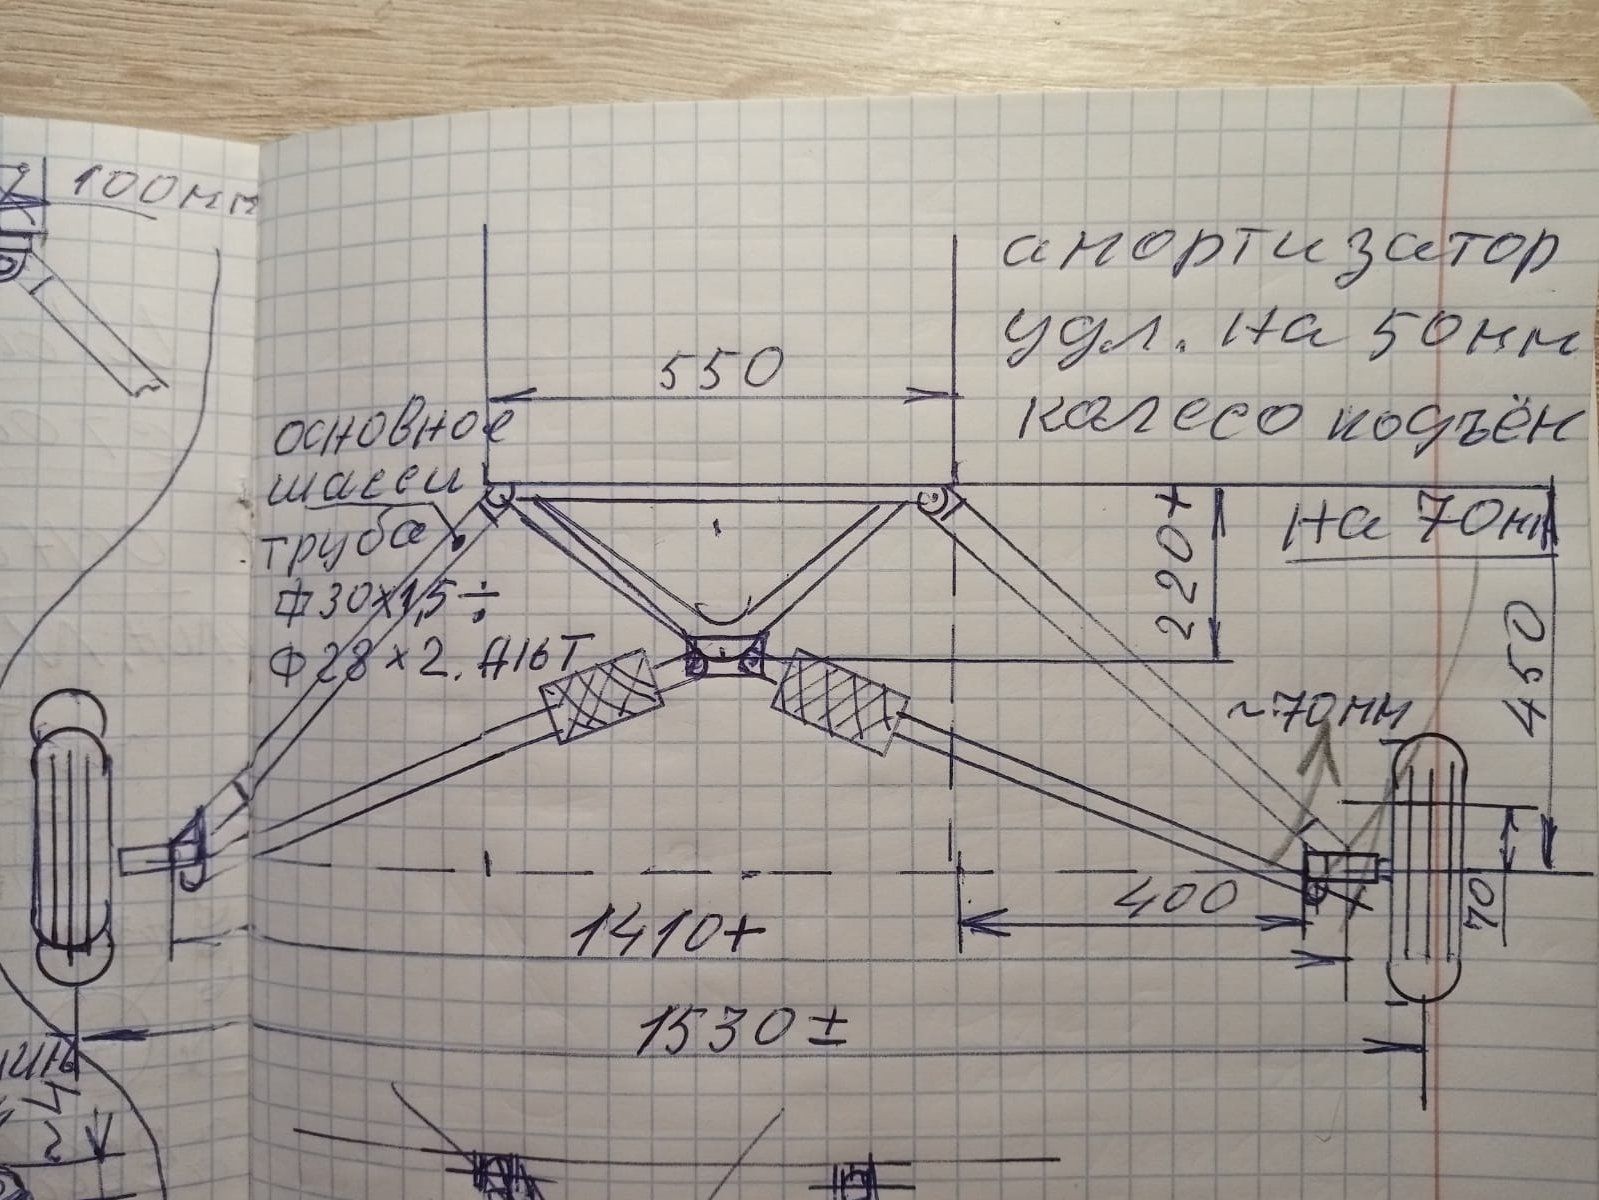 100мм
амортизатор
удл. на 50мм
колесо подъём
на 70мм
550
основное
шасси
труба
Ф30×1,5÷
Ф28×2. Д16Т
220+
450
~70мм
400
70
1410+
1530±
24